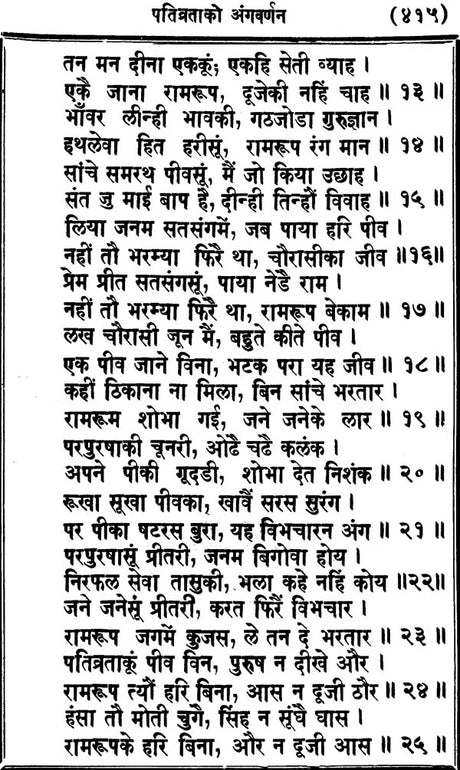 पतिव्रताको अंगवर्णन (४१५)
तन मन दीना एककूं; एकहि सेती व्याह ।
एकै जाना रामरूप, दूजेकी नहिं चाह ॥ १३ ॥
भाँवर लीन्ही भावकी, गठजोडा गुरुज्ञान ।
हथलेवा हित हरीसूं, रामरूप रंग मान ॥ १४ ॥
सांचे समरथ पीवसूं, मैं जो किया उछाह ।
संत जु माई बाप है, दीन्ही तिन्हौं विवाह ॥ १५ ॥
लिया जनम सतसंगमें, जब पाया हरि पीव ।
नहीं तौ भरम्या फिरै था, चौरासीका जीव ॥१६॥
प्रेम प्रीत सतसंगसूं, पाया नेडै राम ।
नहीं तौ भरम्या फिरै था, रामरूप बेकाम ॥ १७ ॥
लख चौरासी जून मैं, बहुते कीते पीव ।
एक पीव जाने विना, भटक परा यह जीव ॥ १८ ॥
कहीं ठिकाना ना मिला, बिन सांचे भरतार ।
रामरूम शोभा गई, जने जनेके लार ॥ १९ ॥
परपुरषाकी चूनरी, ओंढै चढै कलंक ।
अपने पीकी गूदडी, शोभा देत निशंक ॥ २० ॥
रूखा सूखा पीवका, खावैं सरस सुरंग ।
पर पीका षटरस बुरा, यह विभचारन अंग ॥ २१ ॥
परपुरषासूं प्रीतरी, जनम बिगोवा होय ।
निरफल सेवा तासुकी, भला कहे नहिं कोय ॥२२॥
जने जनेसूं प्रीतरी, करत फिरैं विभचार ।
रामरूप जगमें कुजस, ले तन दे भरतार ॥ २३ ॥
पतिव्रताकूं पीव विन, पुरुष न दीखे और ।
रामरूप त्यौं हरि बिना, आस न दूजी ठौर ॥ २४ ॥
हंसा तौ मोती चुगै, सिंह न सूंघै घास ।
रामरूपके हरि बिना, और न दूजी आस ॥ २५ ॥